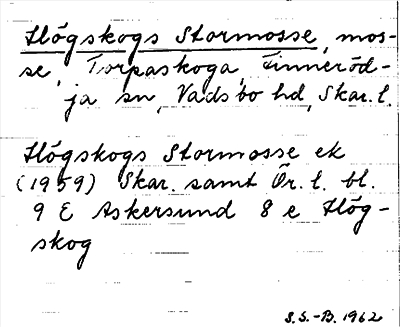 Högskogs Stormosse, mos-
se, Torpaskoga, Finneröd-
ja sn, Vadsbo hd, Skar. l.
Högskogs Stormosse ek
(1959) Skar. samt Ör. l. bl.
9 E Askersund 8 e Hög-
skog
S.S.-B. 1962